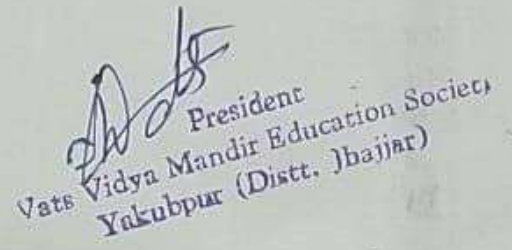 President
Vats Vidya Mandir Education Society
Yakubpur (Distt. Jhajjar)